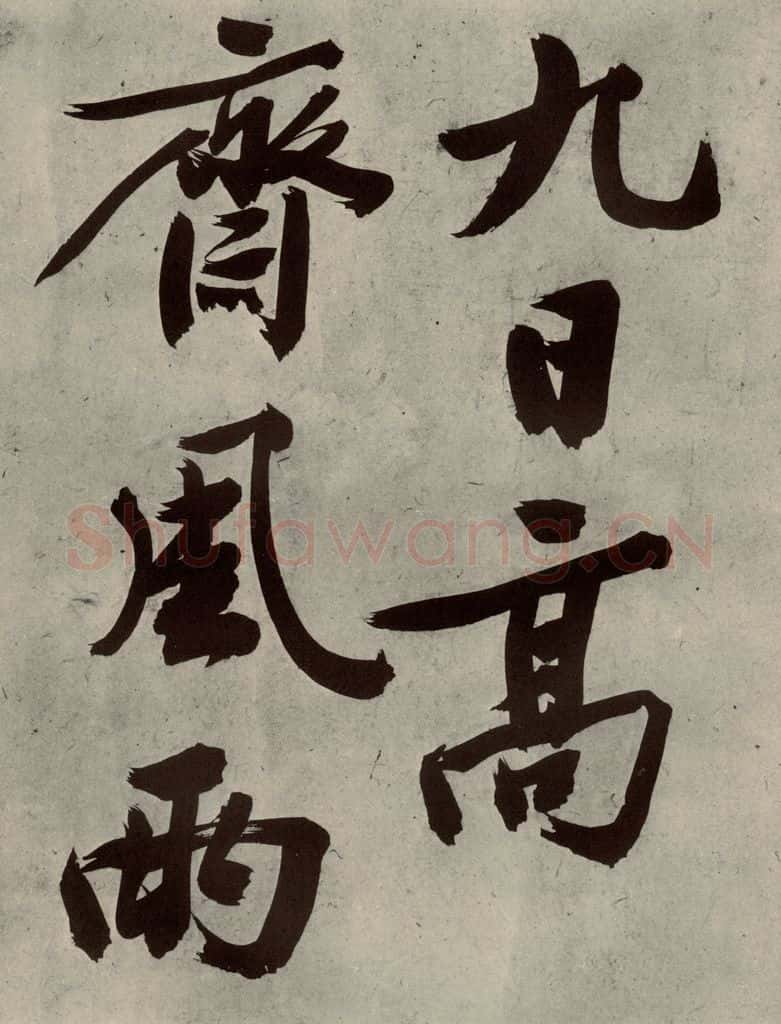 九日高
齊風雨
Shufawang.CN